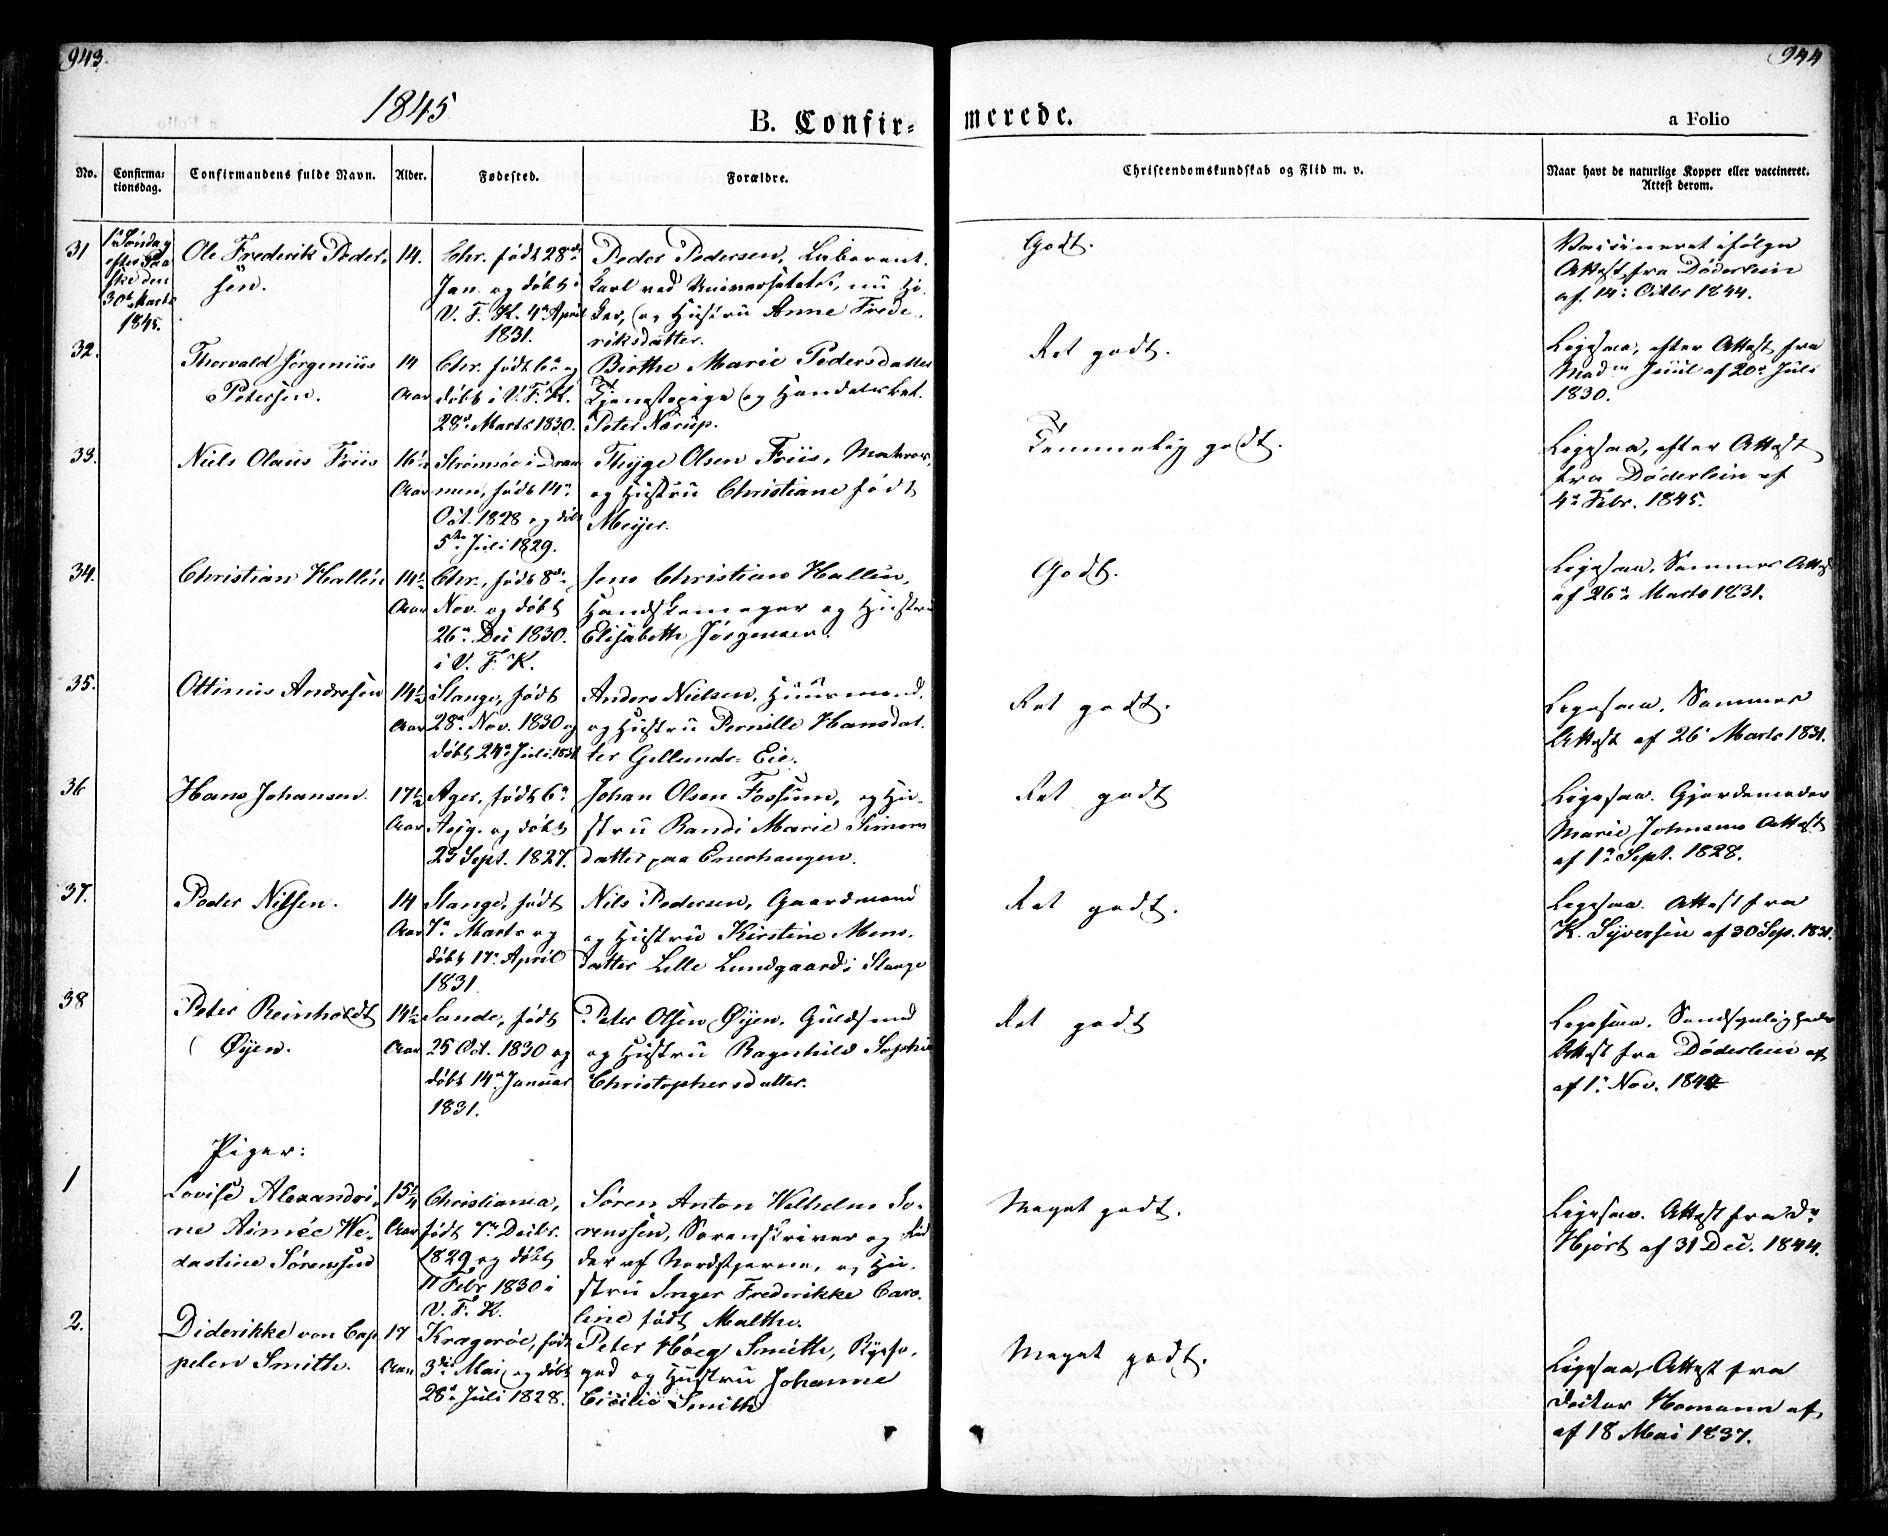 943.
944
1845
B. Confir=
merede.
a Folio
No.
Confirma-
tionsdag.
Confirmandens fulde Navn.
Alder.
Fødested.
Forældre.
Christendomskundskab og Flid m. v.
Naar havt de naturlige Kopper eller vaccineret.
Attest derom.
31
1ste Søndag
efter Paa
ske den
30te Marts
1845.
Ole Frederik Peder,
sen.
14.
Chr. født 28de
Jan. og døbt i
V. F. K. 4de April
1831.
Peder Pedersen, Laborant.
karl ved Universitetet, nu
og Hustru Anne Frede-
riksdatter.
Godt.
Vaccineret ifølge
Attest fra Döderlein
af 14: Octbr 1844.
32.
Thorvald Jørgenius
Petersen.
14
Aar
Chr. født 6te og
døbt i V. F. K.
28de Marts 1830.
Birthe Marie Pedersdatter
Tjenestepige og Handelsbet.
Peter Narup.
Ret godt.
Ligesaa, efter Attest fra
Madm Juul af 20de Juli
1830.
33.
Niels Olaus Friis
16½
Aar
Strømsøe i Dram
men, født 14de
Oct. 1828 og døbt
5te Juli 1829.
Thyge Olsen Friis, Matros,
og Hustru Christiane født
Meyer.
Temmelig godt.
Ligesaa, efter Attest
fra Döderlein af
4de Febr. 1845.
34.
Christian Hallin
14½
Aar
Chr., født 8de
Nov. og døbt
26de Dec 1830.
i V. F. K.
Jens Christian Hallin,
Handskemager og Hustru
Elisabeth Jørgensen.
Godt.
Ligesaa, Sammes Attest
af 26de Marts 1831.
35.
Ottinius Andresen
14½
Aar
Stange, født
28de Nov. 1830 og
døbt 24de Juli 1831
Anders Nielsen, Huusmand.
og Hustru Pernille Hansdat.
ter Gillunds= Eie.
Ret godt.
Ligesaa, Sammes
Attest af 26 Marts 1831.
36
Hans Johansen.
17½
Aar
Ager, født 6te
Aug. og døbt
23 Sept. 1827.
Johan Olsen Fossum, og Hu-
stru Randi Marie Simons
datter paa Enerhaugen.
Ret godt
Ligesaa. Gjordemoder
Marie Johnsens Attest
af 1te Sept. 1828.
37.
Peder Nilsen.
14
Aar
Stange, født
7de Marts og
døbt 17de April
1831.
Nils Pedersen, Gaardmand
og Hustru Kirstine Mons-
datter Lille Lundgaard i Stange
Ret godt.
Ligesaa. Attest fra
K. Syversen af 30 Sep. 1831.
38
Peter Reinholdt
Øyen.
14½
Aar
Sande, født
25 Oct. 1830 og
døbt 14de Januar
1831.
Peter Olsen Øyen, Guldsmed
og Hustru Ragnhild Sophie
Christophersdatter.
Ret godt
Ligesaa. Sandsynligheds
Attest fra Döderlein af
af 1te Nov. 1844
Piger:
1
Lovise Alexandri,
ne Aimée We-
dastine Sørenssen
15¼
Aar
Christiania,
født 7de Decbr.
1829 og døbt
11 Febr 1830 i
V. F. K.
Søren Anton Wilhelm Sø-
renssen, Sorenskriver og Rid
der af Nordstjernen, og Hu-
stru Inger Frederikke Caro-
line født Malthe.
Meget godt.
Ligesaa. Attest fra Dr
Hjort af 31 Dec. 1844.
2.
Diderikke von Cap
pelen Smith.
17
Aar
Kragerøe, født
3die Mai og døbt
28de Juli 1828.
Peter Høeg Smith,
og Hustru Johanne
Cicilie Smith
Meget godt.
Ligesaa, Attest fra
Doctor Homann af
af 18 Mai 1837.